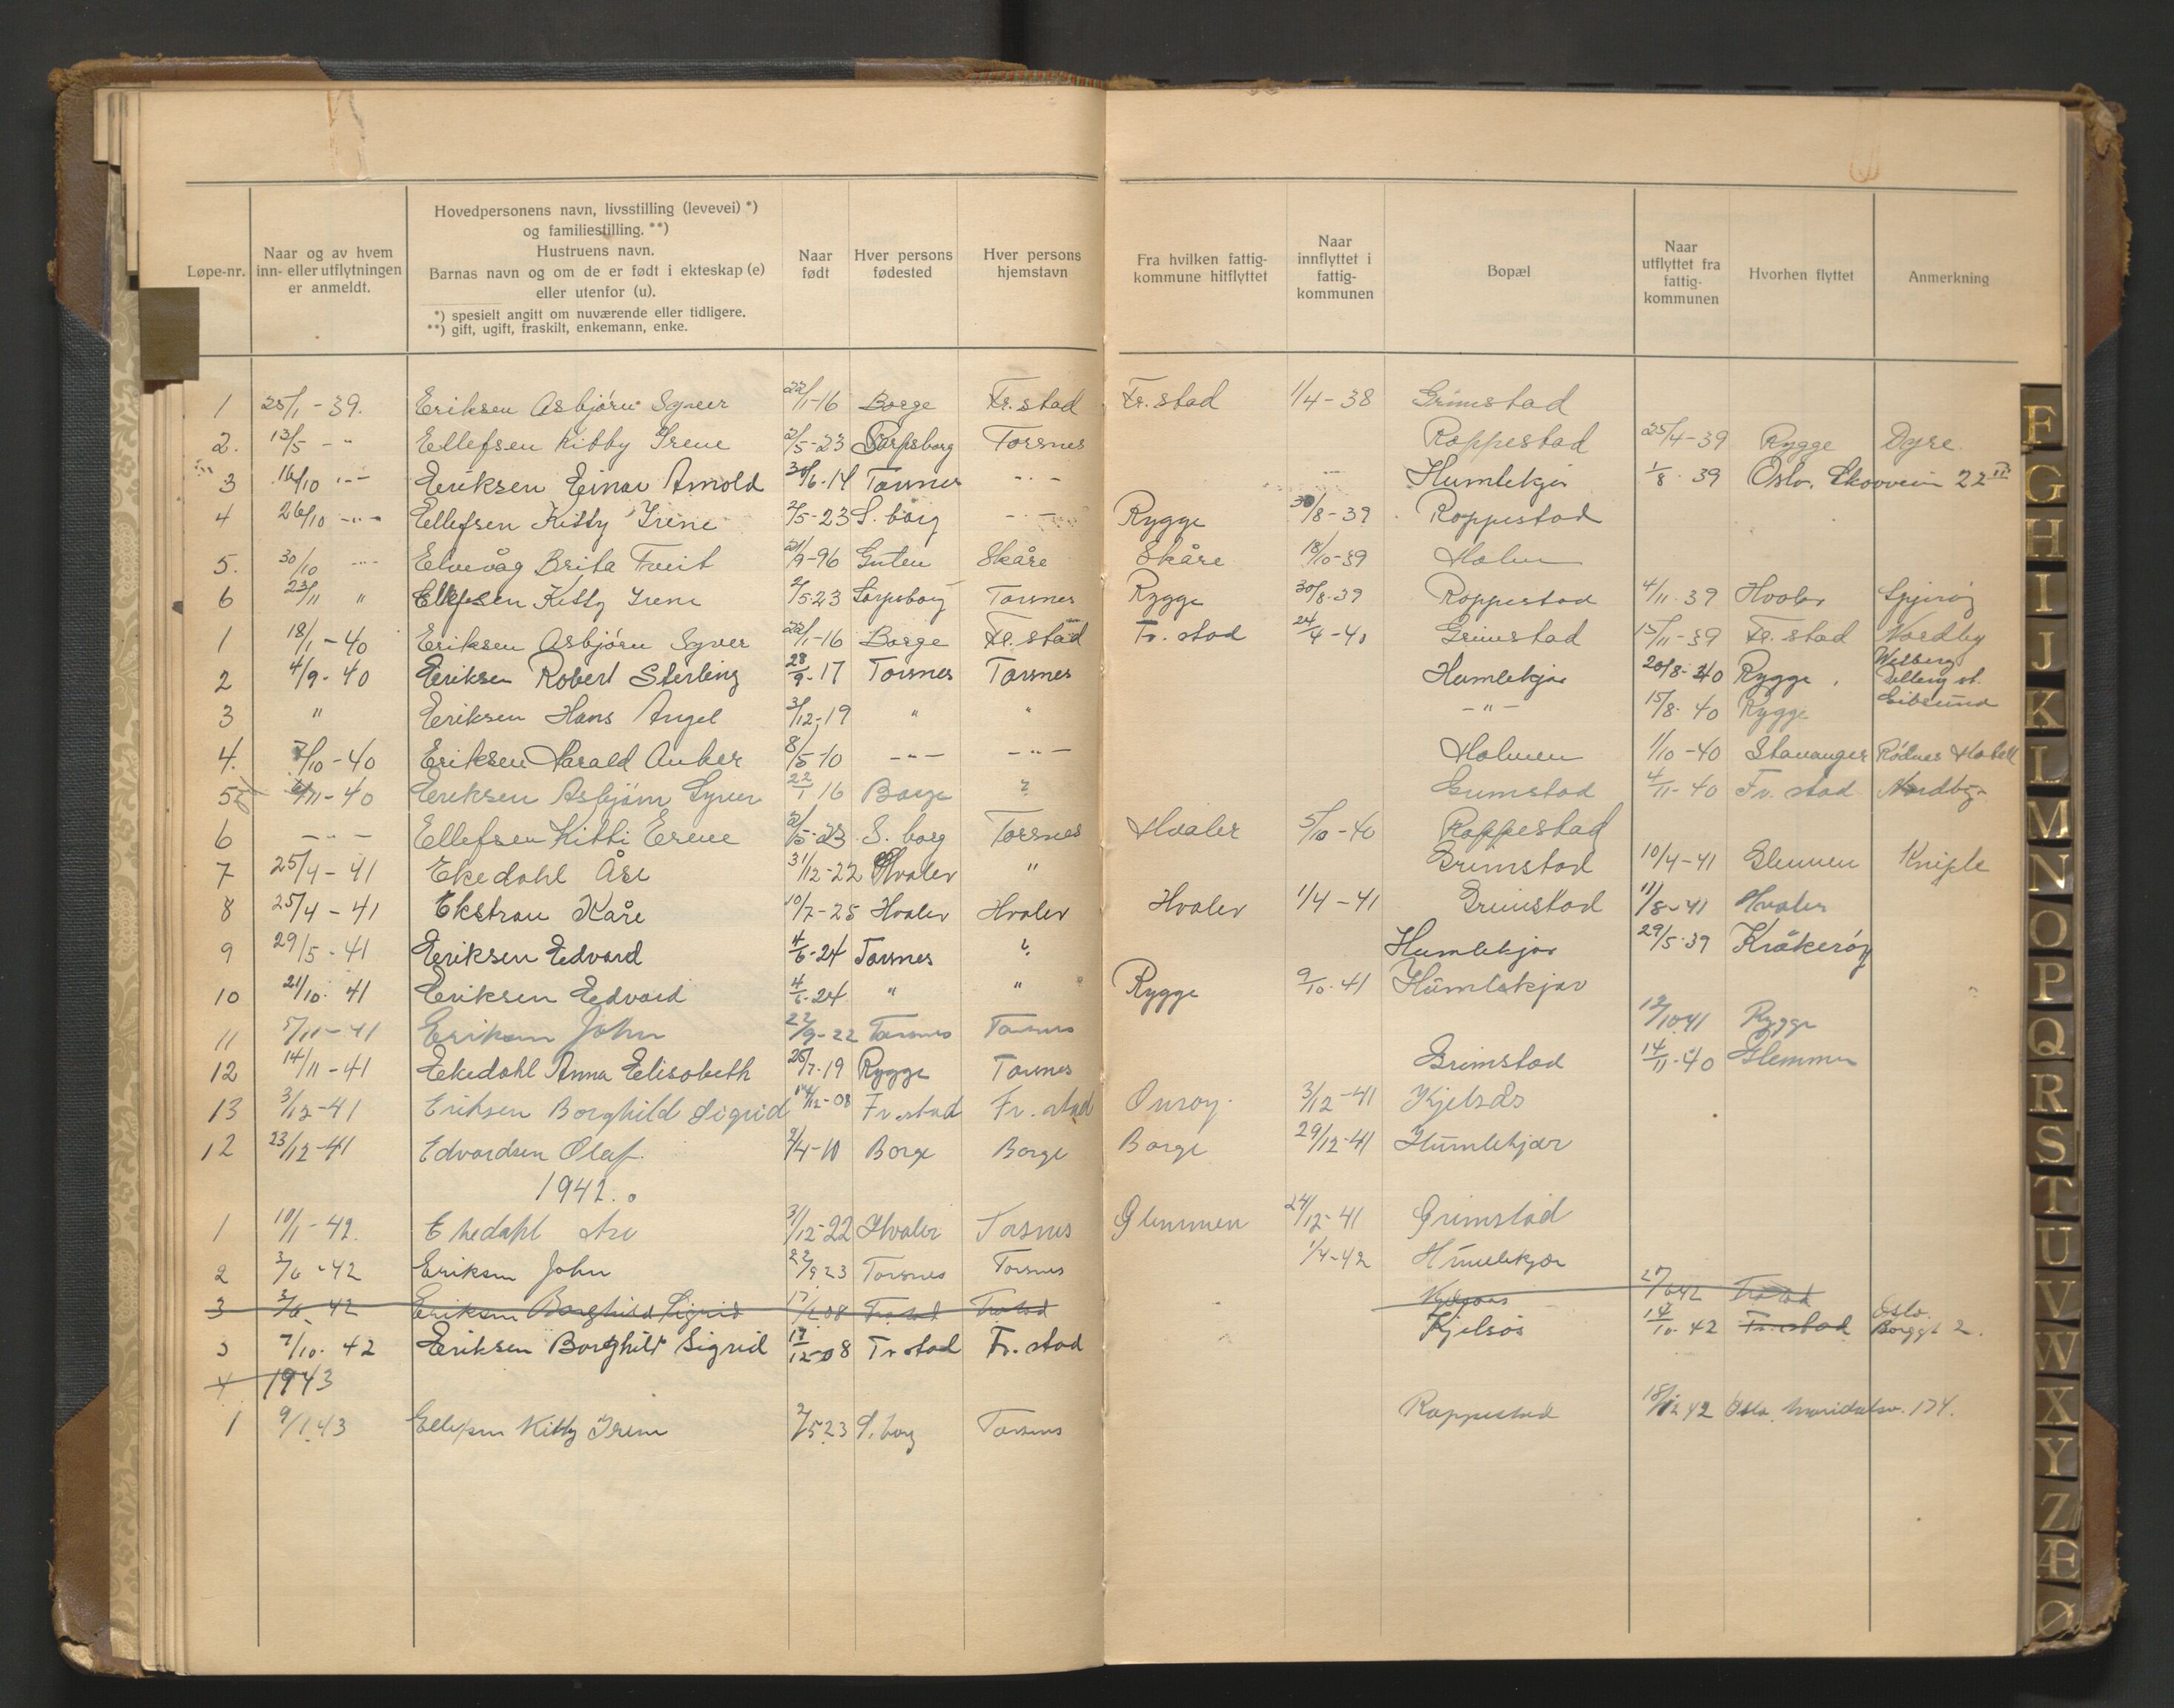 Løpe-nr. | Naar og av hvem inn- eller utflytningen er anmeldt. | Hovedpersonens navn, livsstilling (levevei) *) og familiestilling. **) Hustruens navn. Barnas navn og om de er født i ekteskap (e) eller utenfor (u). *) spesielt angitt om nuværende eller tidligere. **) gift, ugift, fraskilt, enkemann, enke. | Naar født | Hver persons fødested | Hver persons hjemstavn | Fra hvilken fattig-kommune hitflyttet | Naar innflyttet i fattig-kommunen | Bopæl | Naar utflyttet fra fattig-kommunen | Hvorhen flyttet | Anmerkning
1 25/1-39. Eriksen Asbjørn Syver 22/1-16 Borge Fr.stad Fr.stad 1/4-38 Grimstad
2. 13/5 - " Ellefsen Kitby Irene 2/5-23 Sarpsborg Torsnes Roppestad 25/4-39 Rygge Dyre.
3 16/10 -"- Eriksen Einar Arnold 30/6-14 Torsnes -"- Humlekjær 1/8-39 Oslo. Skovvein 22 III
4 26/10 -"- Ellefsen Kitty Irene 2/5-23 S.borg -"- Rygge 30/8-39 Roppestad
5. 30/10 -"- Elvevåg Brita Tveit 21/9-96 Skåre Skåre 18/10-39 Holm
6 23/11 " Ellefsen Kitty Irene 2/5-23 Sarpsborg Torsnes Rygge 30/8-39 Roppestad 4/11-39 Hvaler Spjærøy
1 18/1-40 Eriksen Asbjørn Syver 22/1-16 Borge Fr.stad Fr.stad 24/4-40 Grimstad 15/11-39 Fr.stad Nordby
2 4/9-40 Eriksen Robert Sterling 28/9-17 Torsnes Torsnes Humlekjær 20/8-40 Rygge
3 " Eriksen Hans Angel 3/12-19 " " -"- 15/8-40 Rygge
4. 7/10-40 Eriksen Harald Anker 8/5-10 -"- -"- Holmen 1/10-40 Stavanger Rødnes Hotell
5 6/11-40 Eriksen Asbjørn Syver 22/1 16 Borge ? Grimstad 4/11-40 Fr.stad Nordby
6 -"- Ellefsen Kitti Erene 2/5-23 S.borg Torsnes Hvaler 5/10-40 Roppestad
7 25/4-41 Ekedahl Åse 31/12-22 Hvaler " Grimstad 10/4-41 Glemmen Kniple
8 25/4-41 Ekstrøm Kåre 10/7-25 Hvaler Hvaler Hvaler 1/4-41 Grimstad 11/8-41 Hvaler
9 29/5-41 Eriksen Edvard 4/6-24 Torsnes ? Humlekjær 29/5-39 Kråkerøy
10 21/10-41 Eriksen Edvard 4/6-24 " " Rygge 9/10-41 Humlekjær
11 5/11-41 Eriksen John 22/9-22 Torsnes Torsnes 12/10 41 Rygge
12 14/11-41 Ekedahl Anna Elisabeth 25/7-19 Rygge Torsnes Grimstad 14/11-40 Glemmen
13 3/12-41 Eriksen Borghild Sigrid 17/12-08 Fr.stad Fr.stad Onsøy. 3/12-41 Kjelsås
12 23/12-41 Edvardsen Olaf. 9/4-10 Borge Borge Borge 29/12-41 Humlekjær
1942.
1 10/1-42. Ekedahl Åse 31/12-22 Hvaler Torsnes Glemmen 24/12-41 Grimstad
2 3/6-42 Eriksen John 22/9 23 Torsnes Torsnes 1/4-42 Humlekjær
3 3/6-42 Eriksen Borghild Sigrid 17/12 08 Fr.stad Fr.stad Kjelsås Fr.stad
3 7/10-42 Eriksen Borghild Sigrid 17/12-08 Fr.stad Fr.stad Kjelsøs 14/10-42 Fr.stad Oslo. Borggt 2.
4 1943
1 9/1 43 Ellefsen Kitty Irene 2/5 23 S.borg Torsnes Roppestad 18/12 42 Oslo, Maridalsv. 174.
F
G
H
I
J
K
L
M
N
O
P
Q
R
S
T
U
V
W
X
Y
Z
Æ
Ø